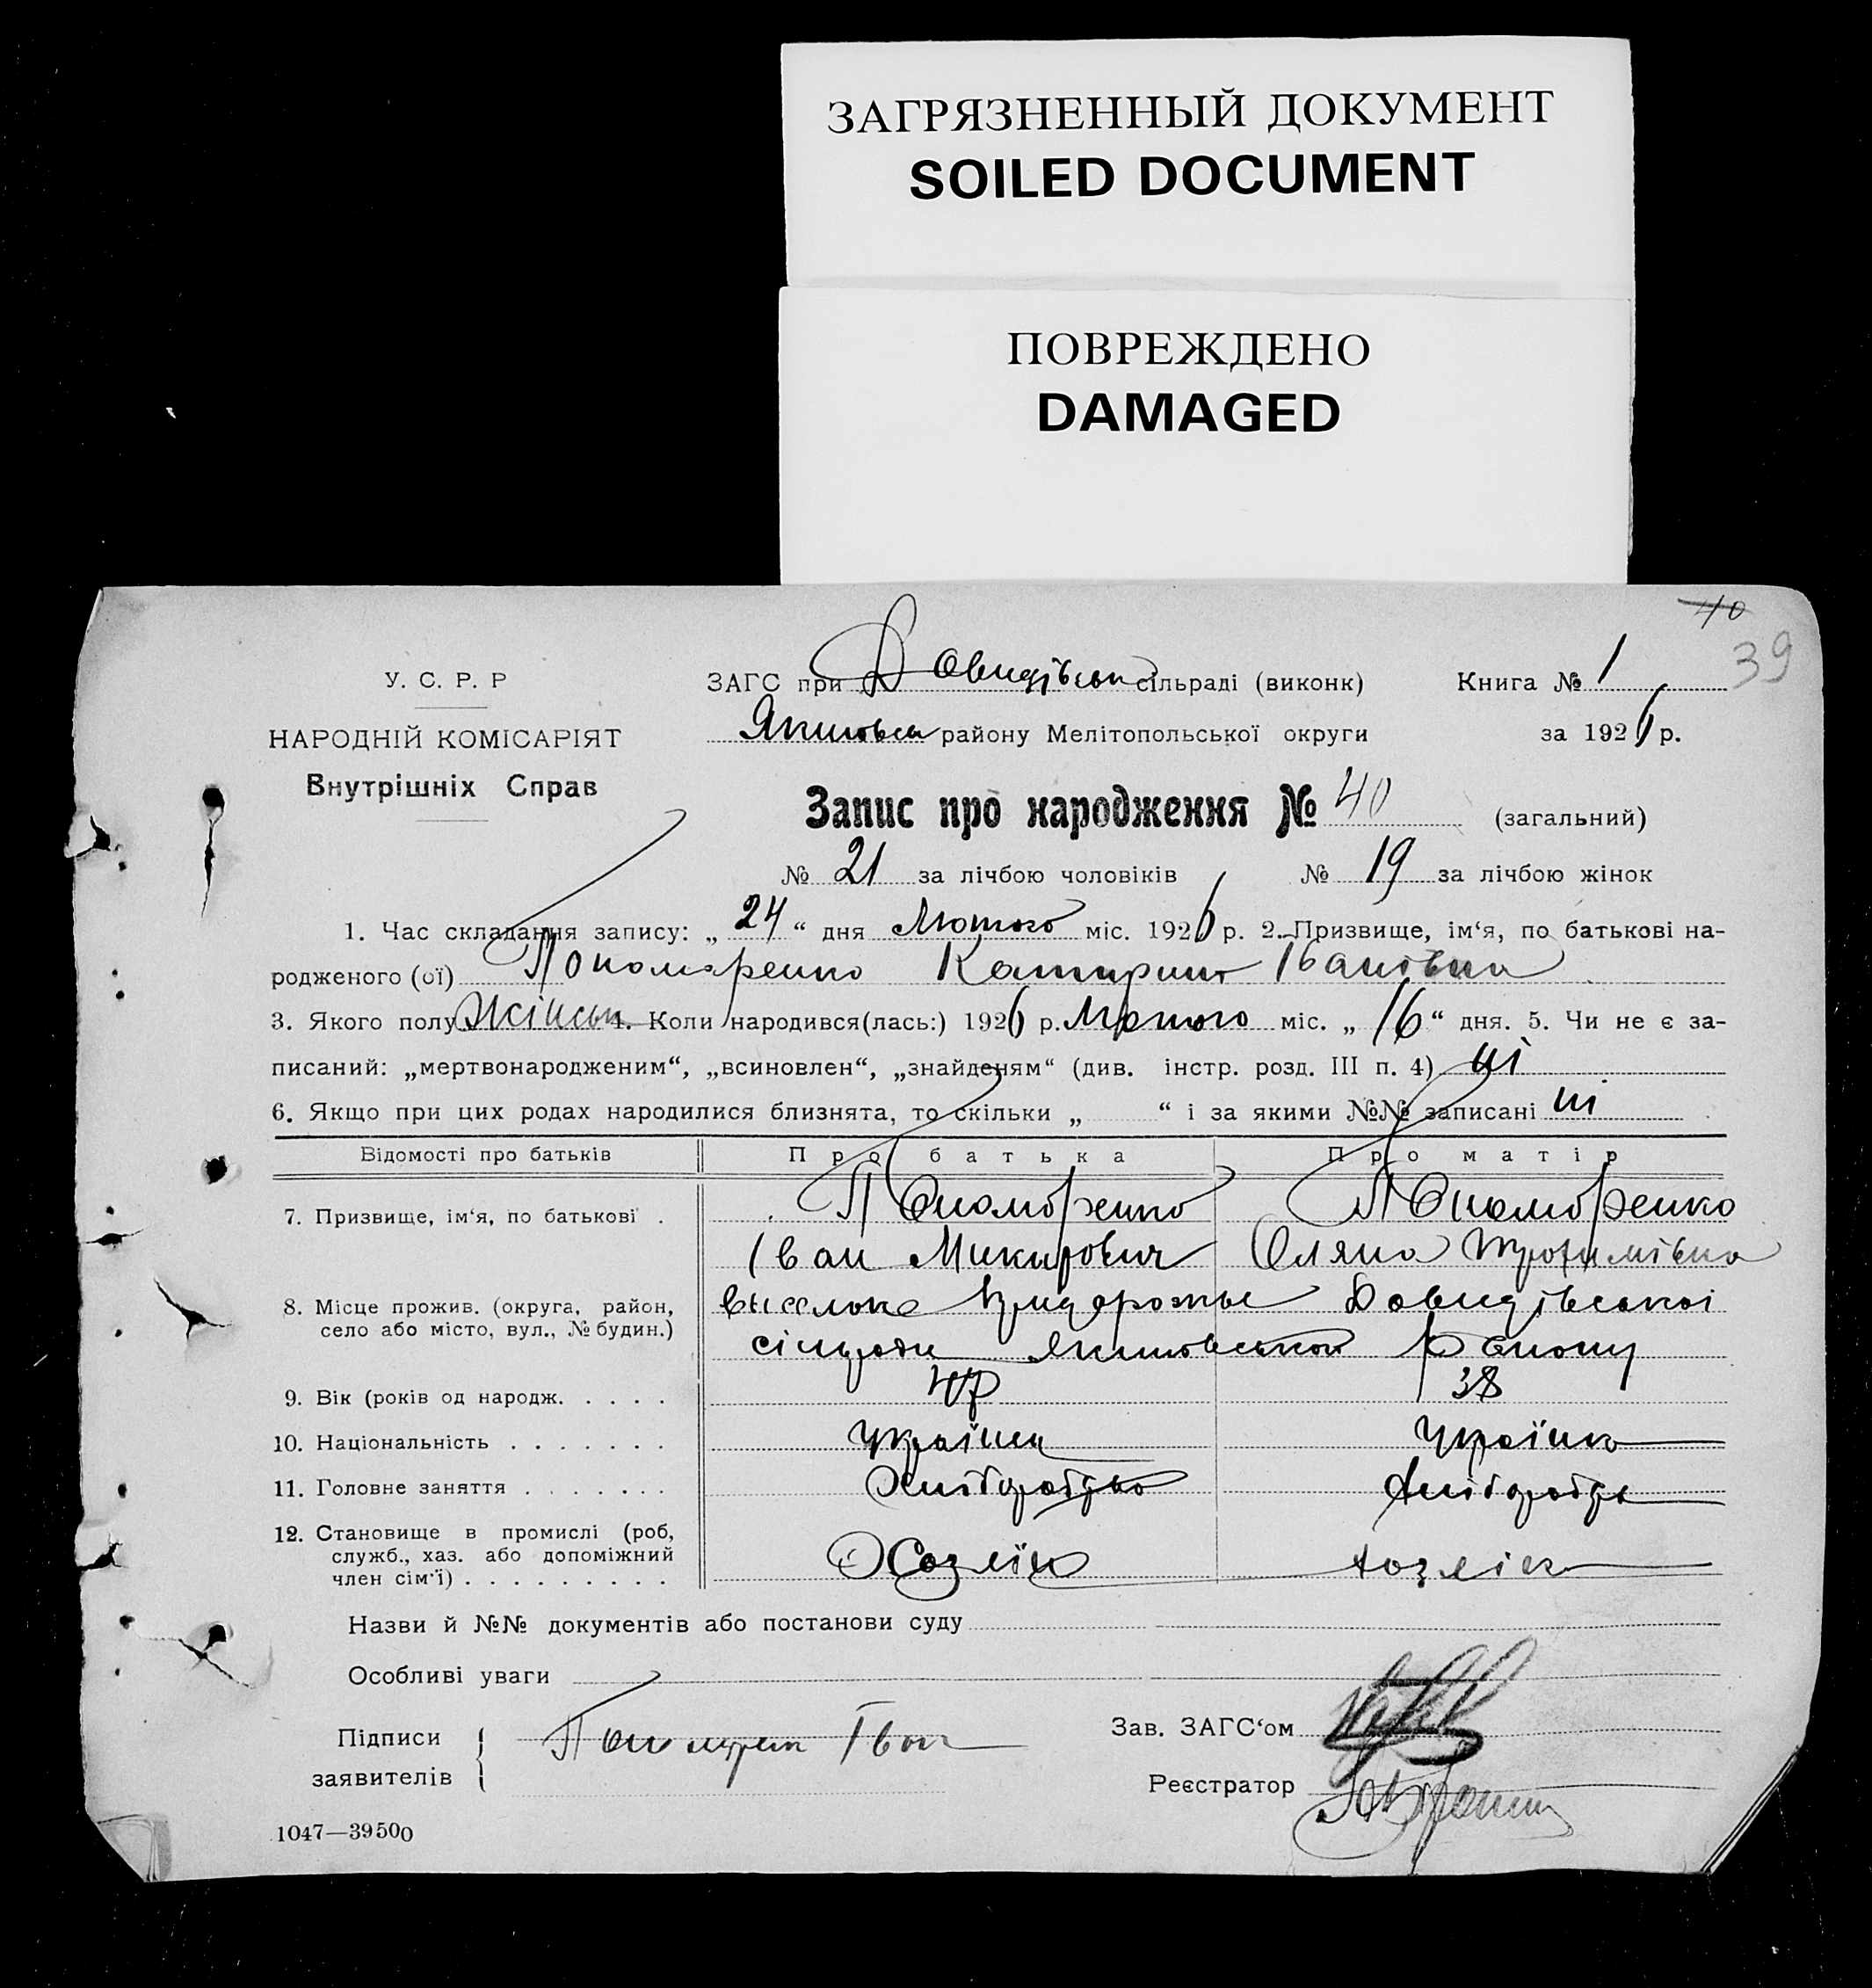 ЗАГРЯЗНЕННЫЙ ДОКУМЕНТ
SOILED DOCUMENT
ПОВРЕЖДЕНО
DAMAGED
40
39
У. С. Р. Р
НАРОДНІЙ КОМІСАРІЯТ
Внутрішніх Справ
ЗАГС при Довидівськ сільраді (виконк) Книга № 1
Якимовськ району Мелітопольської округи за 1926 р.
Запис про народження № 40 (загальний)
№ 21 за лічбою чоловіків № 19 за лічбою жінок
1. Час складання запису: „24“ дня Лютого міс. 1926 р. 2. Призвище, ім‘я, по батькові на-
родженого (ої) Пономаренко Катирина Івановна
3. Якого полу Жіноч 4. Коли народився(лась:) 1926 р. Лютого міс. „16“ дня. 5. Чи не є за-
писаний: „мертвонародженим“, „всиновлен“, „знайденям“ (див. інстр. розд. III п. 4) ні
6. Якщо при цих родах народилися близнята, то скільки „ “ і за якими №№ записані ні
Відомості про батьків Про батька Про матір
7. Призвище, ім‘я, по батькові . Пономоренко Пономоренко
Іван Микирович Оляна Трохимівна
8. Місце прожив. (округа, район, Довидівськоі
село або місто, вул., № будин.) сілради Якимовського Району
9. Вік (років од народж. . . . . 47 38
10. Національність . . . . . . . україна україна
11. Головне заняття . . . . . . . Хліборобдво хліборобдв
12. Становище в промислі (роб,
служб., хаз. або допоміжний Хозяїн хозяіка
член сім‘ї) . . . . . . . . .
Назви й №№ документів або постанови суду
Особливі уваги
Підписи Іван Зав. ЗАГС‘ом
заявителів Реєстратор
1047—39500